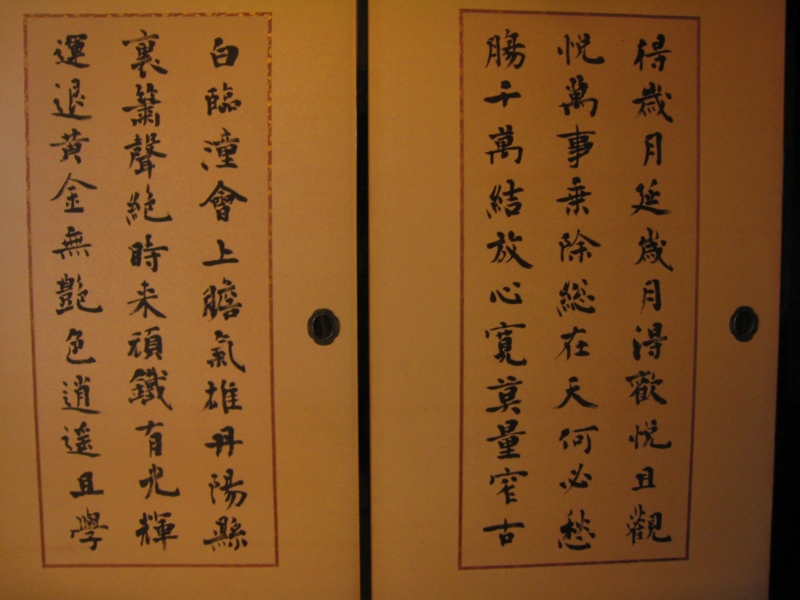 得歳月延歳月得歡悦且觀
悦萬事乗除総在天何必愁
腸千萬結放心寛莫量窄古
白臨潼會上膽氣雄丹陽縣
裏簫聲絶時来頑鐵有光輝
運退黄金無艷色逍遥且學